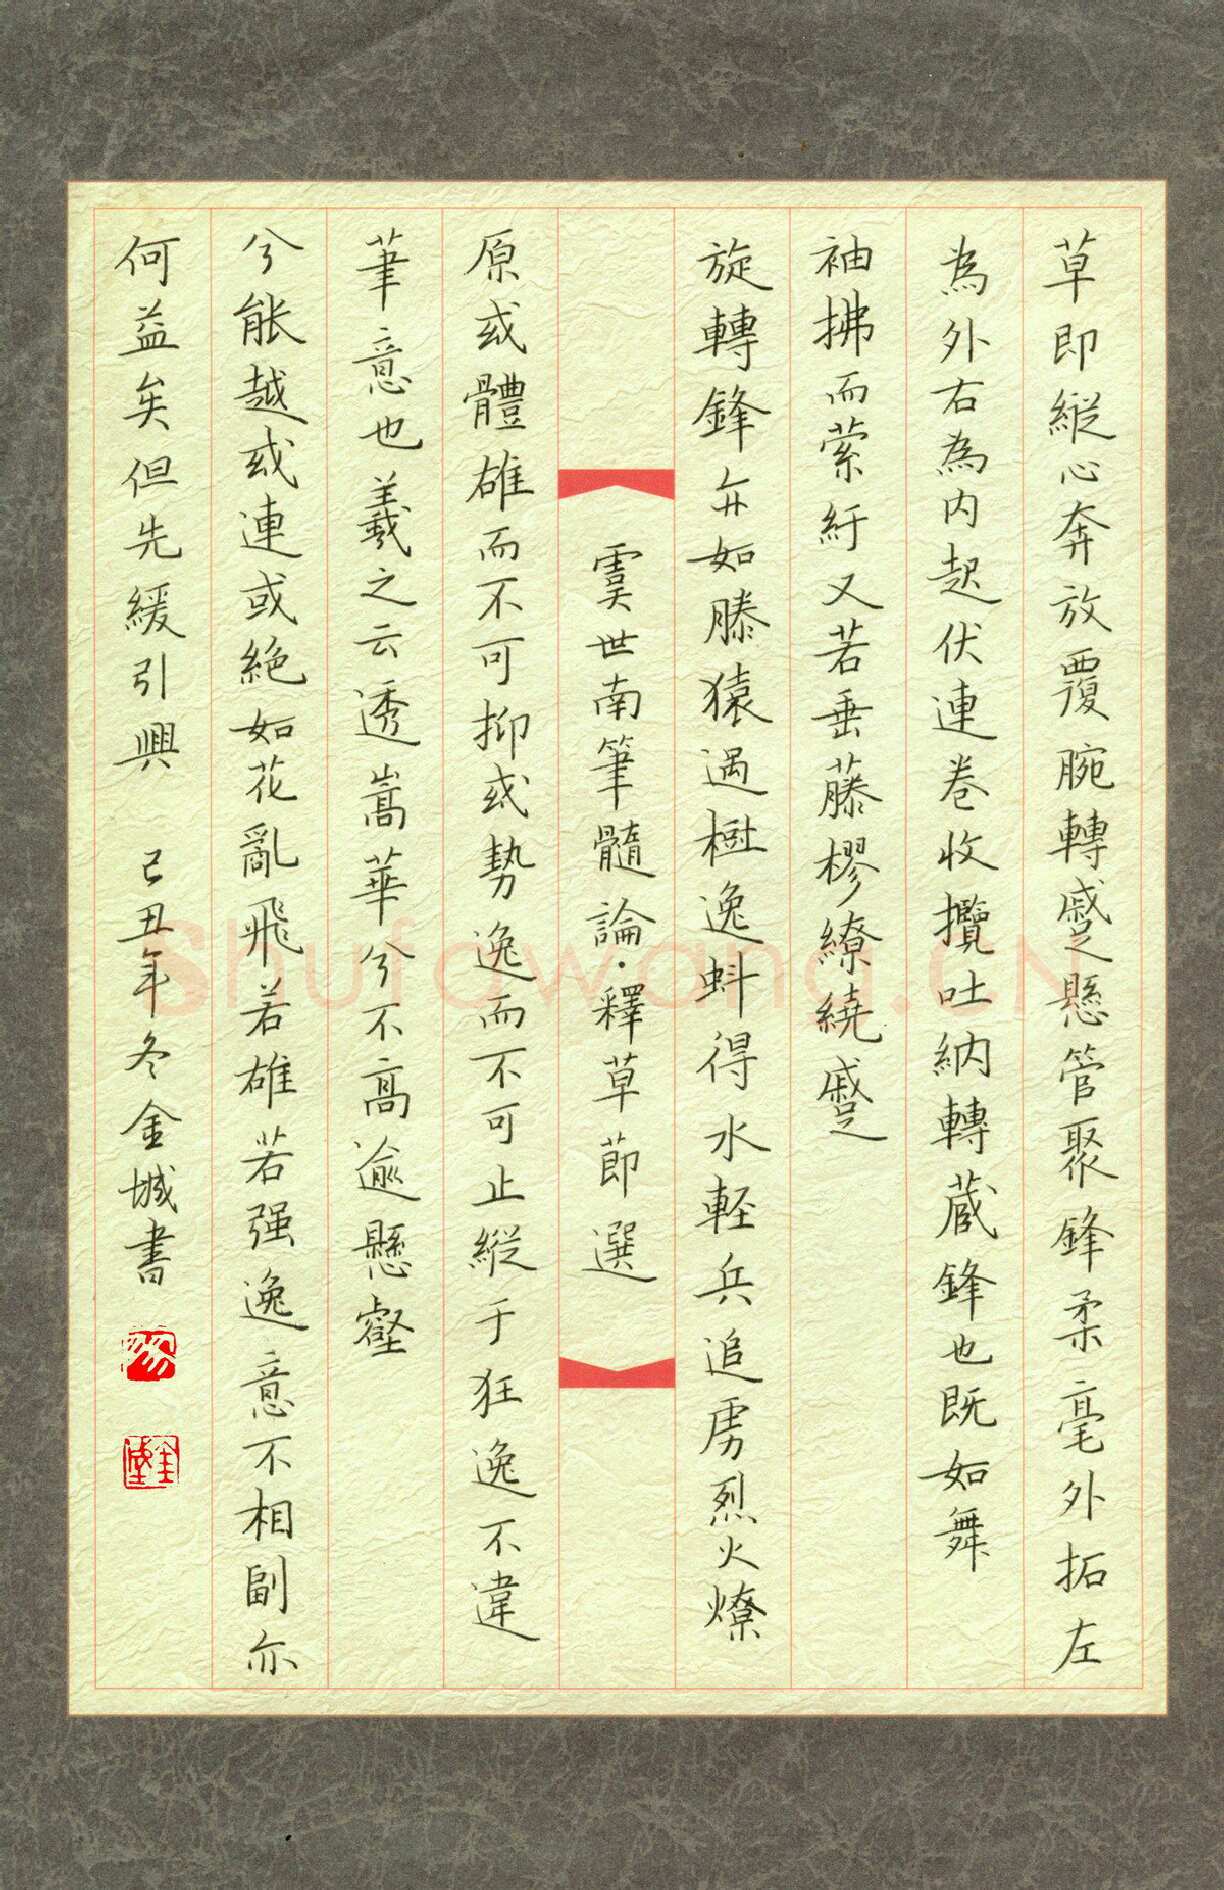 草即縱心奔放覆腕轉蹙懸管聚鋒柔毫外拓左
為外右為內起伏連卷收攬吐納轉蔵鋒也既如舞
袖拂而縈紆又若垂藤樛繚繞蹙
旋轉鋒亦如騰猿過樹逸蚪得水軽兵追虜烈火燎
虞世南筆髓論·釋草節選
原或體雄而不可抑或勢逸而不可止縱于狂逸不違
筆意也羲之云透嵩華兮不高逾懸壑
兮能越或連或絕如花亂飛若雄若强逸意不相副亦
何益矣但先緩引興 己丑年冬金城書
Shufawang.CN